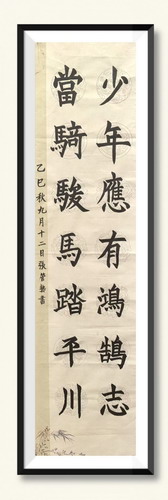 少年應有鴻鵠志
當騎駿馬踏平川
乙巳秋九月十二日張營